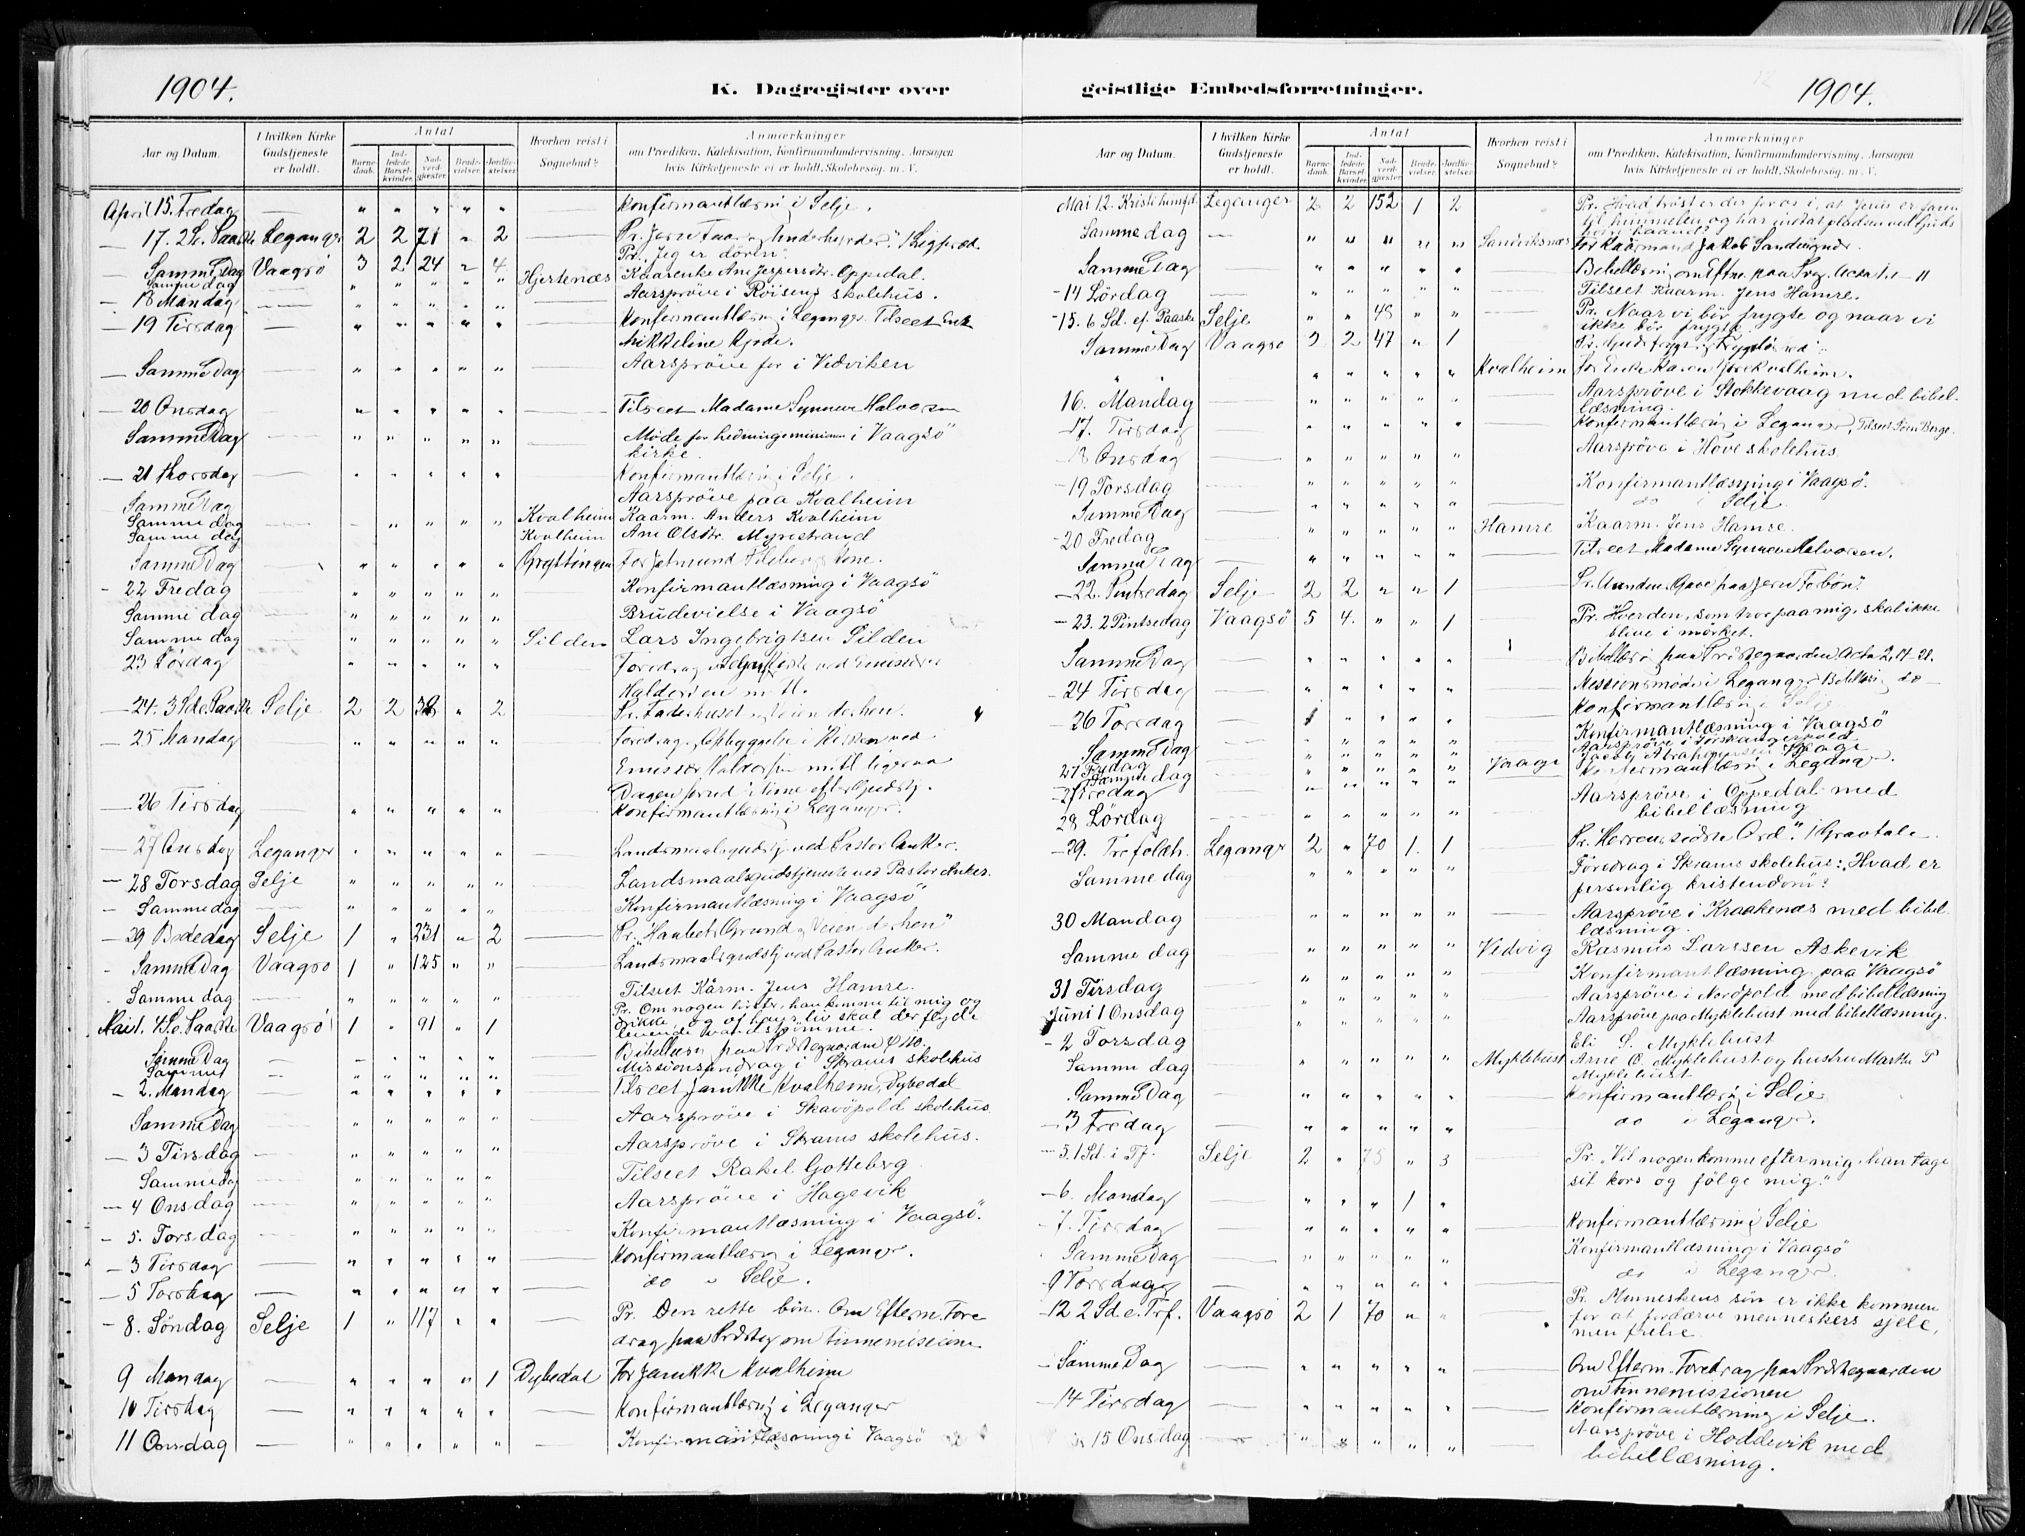 1904.
K. Dagregister over
Aar og Datum.
I hvilken Kirke Gudstjeneste er holdt.
Antal
Barnedaab.
Indledede Barselkvinder.
Nadverdgjester.
Brudevielser.
Jordfæstelser.
Hvorhen reist i Sognebud?
Anmærkninger
om Prædiken, Katekisation, Konfirmandundervisning, Aarsagen
hvis Kirketjeneste ei er holdt, Skolebesøg, m. V.
April 15. Fredag — " " " " " — Konfirmantlæsn. i Selje.
— 17. 2 S. Paaske Leganger 2 2 71 " 2
Samme Dag Vaagsø 3 2 24 " 4 Pr. Jeg er døren
Samme dag " " " " " Hjertenæs Kaarenke Ane Jespersdtr. Oppedal.
— 18 Mandag — " " " " " — Aarsprøve i Röisens skolehus.
— 19 Tirsdag — " " " " " — Konfirmantlæsn. i Leganger. Tilseet Enke
Nikkeline Gjerde.
— Samme Dag — " " " " " — Aarsprøve for i Vedviken
— 20 Onsdag — " " " " " — Tilseet Madame Synneve Halvorsen
Samme Dag — " " " " " — Møde for hedningemissionen i Vaagsö
kirke.
— 21 Torsdag — " " " " " — Konfirmantlæsn. i Selje.
Samme Dag Aarsprøve paa Kvalheim
Samme dag — " " " " Kvalheim Kaarm. Anders Kvalheim
Samme dag Kvalheim Ane Olsdtr. Myrestrand
Samme Dag — " " " " " Gryttingen
- 22 Fredag — " " " " " — Konfirmantlæsning i Vaagsö
Samme dag — " " " " " — Brudevielse i Vaagsö
Samme dag — " " " " " Silden Lars Ingebrigtsen Silden
23 Lørdag " " " " " Foredrag i Selje Kirke ved Emissær
Haldorsen
— 24. 3 S. e. Paaske Selje 2 2 38 " 2
— 25 Mandag — " " " " " —
— 26 Tirsdag — " " " " " — Konfirmantlæsn. i Leganger.
— 27 Onsdag Leganger " " " " " — Landsmaalsgudstj. ved Pastor Anker.
— 28 Torsdag Selje " " " " " — Landsmaalsgudstjeneste ved Pastor Anker.
- Samme dag " " " " " — Konfirmantlæsning i Vaagsö
— 29 Bededag Selje 1 " 231 " 2 —
- Samme Dag Vaagsø 1 " 125 " " — Landsmaalsgudstj. ved Pastor Anker.
Samme dag — " " " " " — Tilseet Kårm. Jens Hamre.
Mai 1. 4 S. e. Paaske Vaagsö 1 " 91 " 1 — Pr. Om nogen törster, han komme til mig og
drikke og af hans liv skal der flyde
levende vandstrømme.
Samme Dag — " " " " " — Bibellæsn. paa Præstegaarden
Samme — " " " " " — Missionsforedrag i Skrams skolehus
- 2. Mandag — " " " " " — Tilseet Janikke Kvalheim, Dybedal
Samme Dag — " " " " " — Aarsprøve i Skavöpold skolehus.
— 3 Tirsdag — " " " " " — Aarsprøve i Skrams skolehus.
Samme dag — " " " " " — Tilseet Rakel Gotteberg
— 4 Onsdag — " " " " " — Aarsprøve i Hagevik
— 5. Torsdag — " " " " " — Konfirmantlæsning i Vaagsö.
— 3 Tirsdag — " " " " " — Konfirmantlæsn. i Leganger.
— 5 Torsdag — " " " " " — do " Selje.
— 8. Søndag Selje 1 " 117 " " — Pr. Den rette bön. Om Efterm. Fore
drag paa Præsteg. om Finnemissionen
9 Mandag — " " " " 1 Dybedal For Janikke Kvalheim
10 Tirsdag — " " " " " — Konfirmantlæsn. i Leganger
11 Onsdag — " " " " " — Konfirmantlæsning i Vaagsö
geistlige Embedsforretninger.
12
1904.
Aar og Datum.
I hvilken Kirke Gudstjeneste er holdt.
Antal
Barnedaab.
Indledede Barselkvinder.
Nadverdgjester.
Brudevielser.
Jordfæstelser.
Hvorhen reist i Sognebud?
Anmærkninger
om Prædiken, Katekisation, Konfirmandundervisning, Aarsagen
hvis Kirketjeneste ei er holdt, Skolebesøg, m. V.
Mai 12. Kristi himfd. Leganger 2 2 152 1 2 — Pr. Hvad tröst er der for os i, at Jesus er faren
til himmelen og har indtat pladsen ved Guds
höire haand?
Samme dag — " " " " " Sandviksnæs for Kaarmand Jakob
Samme Dag — " " " " " —
- 14 Lördag — " " " " " — Tilseet Kaarm. Jens Hamre.
- 15. 6 Sd. ef. Paaske Selje " " 48 " " — Pr. Naar vi bör frygte og naar vi
ikke bör frygte
Samme Dag Vaagsø 3 2 47 " 1 —
" " " " " Kvalheim
16. Mandag — " " " " " — Aarsprøve i Stokkevaag med bibel-
læsning.
- 17. Tirsdag — " " " " " — Konfirmantlæsn. i Leganger. Tilseet Sören Berge.
- 18 Onsdag — " " " " " — Aarsprøve i Hove skolehus.
- 19 Torsdag — " " " " " — Konfirmantlæsning i Vaagsö.
Samme Dag — " " " " " — do i Selje.
- 20 Fredag — " " " " " Hamre Kaarm. Jens Hamre.
Samme Dag — " " " " " — Tilseet Madame Synneve Halvorsen.
— 22. Pintsedag Selje 2 2 " " 1 —
— 23. 2 Pintsedag Vaagsö 5 4. " " 1 — Pr. Hver den, som tror paa mig, skal ikke
blive i mørket.
Samme Dag — " " " " " Bibellæsn. paa Præstegaarden
— 24 Tirsdag — " " " " " — Missionsmøde i Leganger
— 26 Torsdag — " " " " — Konfirmantlæsn. i Selje
Samme Dag — " " " " " — Konfirmantlæsning i Vaagsö
27 Fredag — " " " " "
Samme dag — " " " " " Vaage
- 27 Fredag — " " " " " — Konfirmantlæsn. i Leganger.
28 Lördag — " " " " " — Aarsprøve i Oppedal med
bibellæsning
— 29. Trefoldh. Leganger 2 " 70 1. 1 — Pr. Herrens sidste Ord. 1 Gravtale.
Samme dag — " " " " " — Foredrag i Skrams skolehus: Hvad er
personlig kristendom?
30 Mandag — " " " " " — Aarsprøve i Kraakenæs med bibel-
læsning.
Samme dag — " " " " " Vedvig Rasmus Larssen Askevik
31 Tirsdag — " " " " " — Konfirmantlæsning paa Vaagsö
Aarsprøve i Nordpold med bibellæsning
Juni 1 Onsdag — " " " " " — Aarsprøve paa Myklebust med bibellæsning.
- 2 Torsdag — " " " " " — Eli S. Myklebust
Samme dag — " " " " " Myklebust Arne O. Myklebust og hustru Marthe P
Myklebust
Samme Dag — " " " " " — Konfirmantlæsn. i Selje
— 3 Fredag — " " " " " — do i Leganger.
— 5. 1 Sd. i Tf. Selje 2 " 75 " 3 — Pr. Vil nogen komme efter mig, han tage
sit kors og følge mig."
— 6. Mandag — " " " 1 " —
— 7. Tirsdag — " " " " " — Konfirmantlæsn. i Selje
Samme Dag — " " " " " — Konfirmantlæsning i Vaagsö
9 Torsdag — " " " " " — do i Leganger.
— 12 2 Sd e. Trf. Vaagsö 2 1 70 " " — Pr. Menneskens sön er ikke kommen
for at fordærve menneskers sjele,
men frelse
— Samme Dag — " " " " " — Om Efterm. Foredrag paa Præstegaarden
om Finnemissionen
— 14 Tirsdag — " " " " " — Konfirmantlæsning i Selje.
15 Onsdag — " " " " " — Aarsprøve i Hoddevik med
bibellæsning.